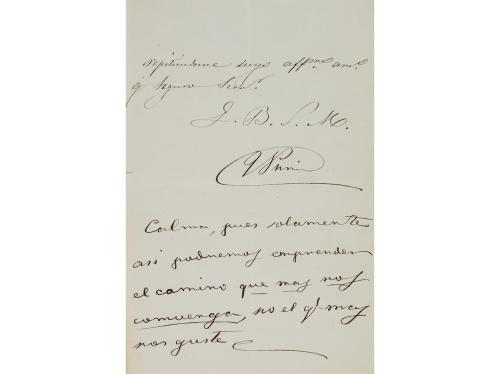 repitiéndome suyo affmo amo
q Seguro Servr
Q. B. S. M.
Calma, pues solamente
asi podremos emprender
el camino que mas nos
convenga, no el q' mas
nos guste